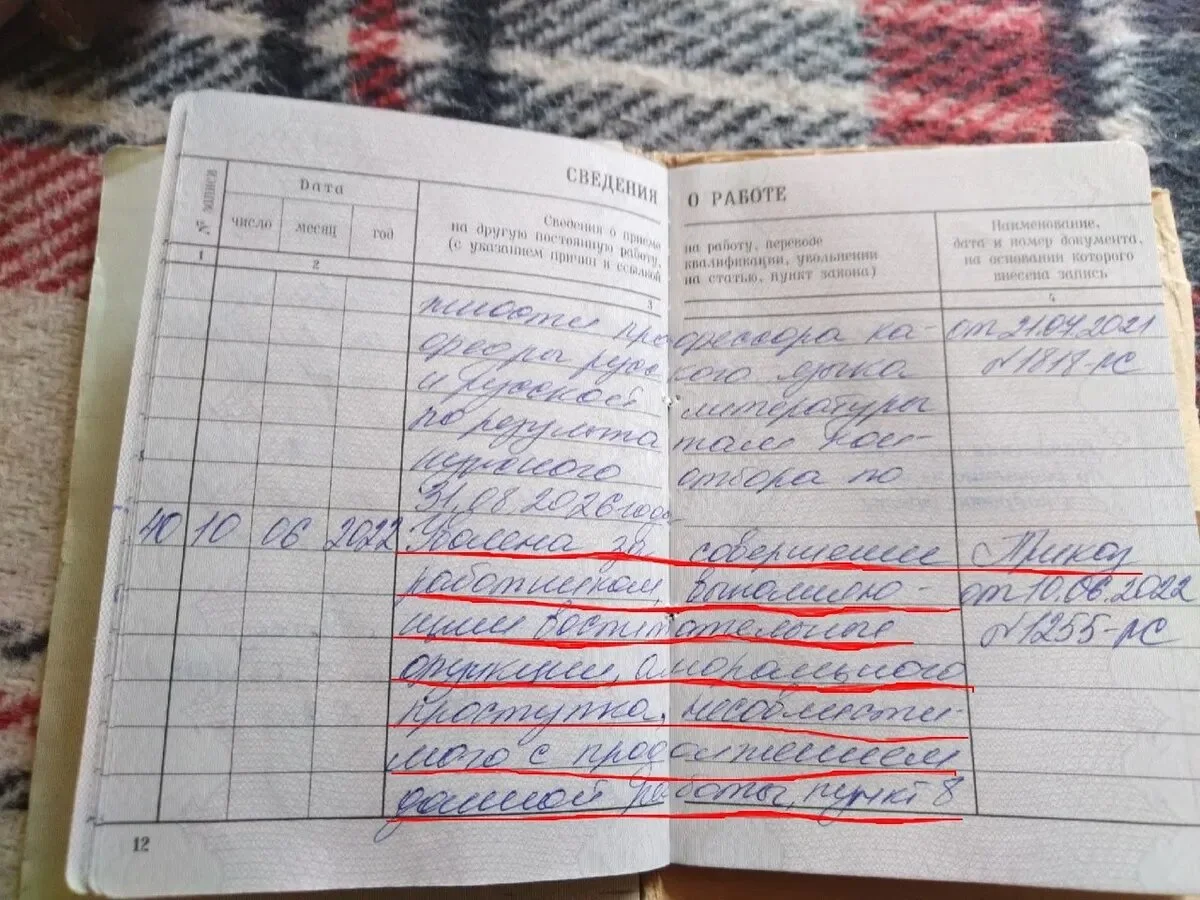 СВЕДЕНИЯ О РАБОТЕ
№ записи
Дата
число месяц год
Сведения о приеме на работу, переводе
на другую постоянную работу, квалификации, увольнении
(с указанием причин и ссылкой на статью, пункт закона)
Наименование,
дата и номер документа,
на основании которого
внесена запись
1 2 3 4
жности профессора ка- от 21.04.2021
федры русского языка №1818-рс
и русской литературы
по результатам кон-
курсного отбора по
31.08.2026 года
40 10 06 2022 Уволена за совершение Приказ
работником, выполняю- от 10.06.2022
щим воспитательные №1255-рс
функции, аморального
проступка, несовмести-
мого с продолжением
данной работы, пункт 8
12